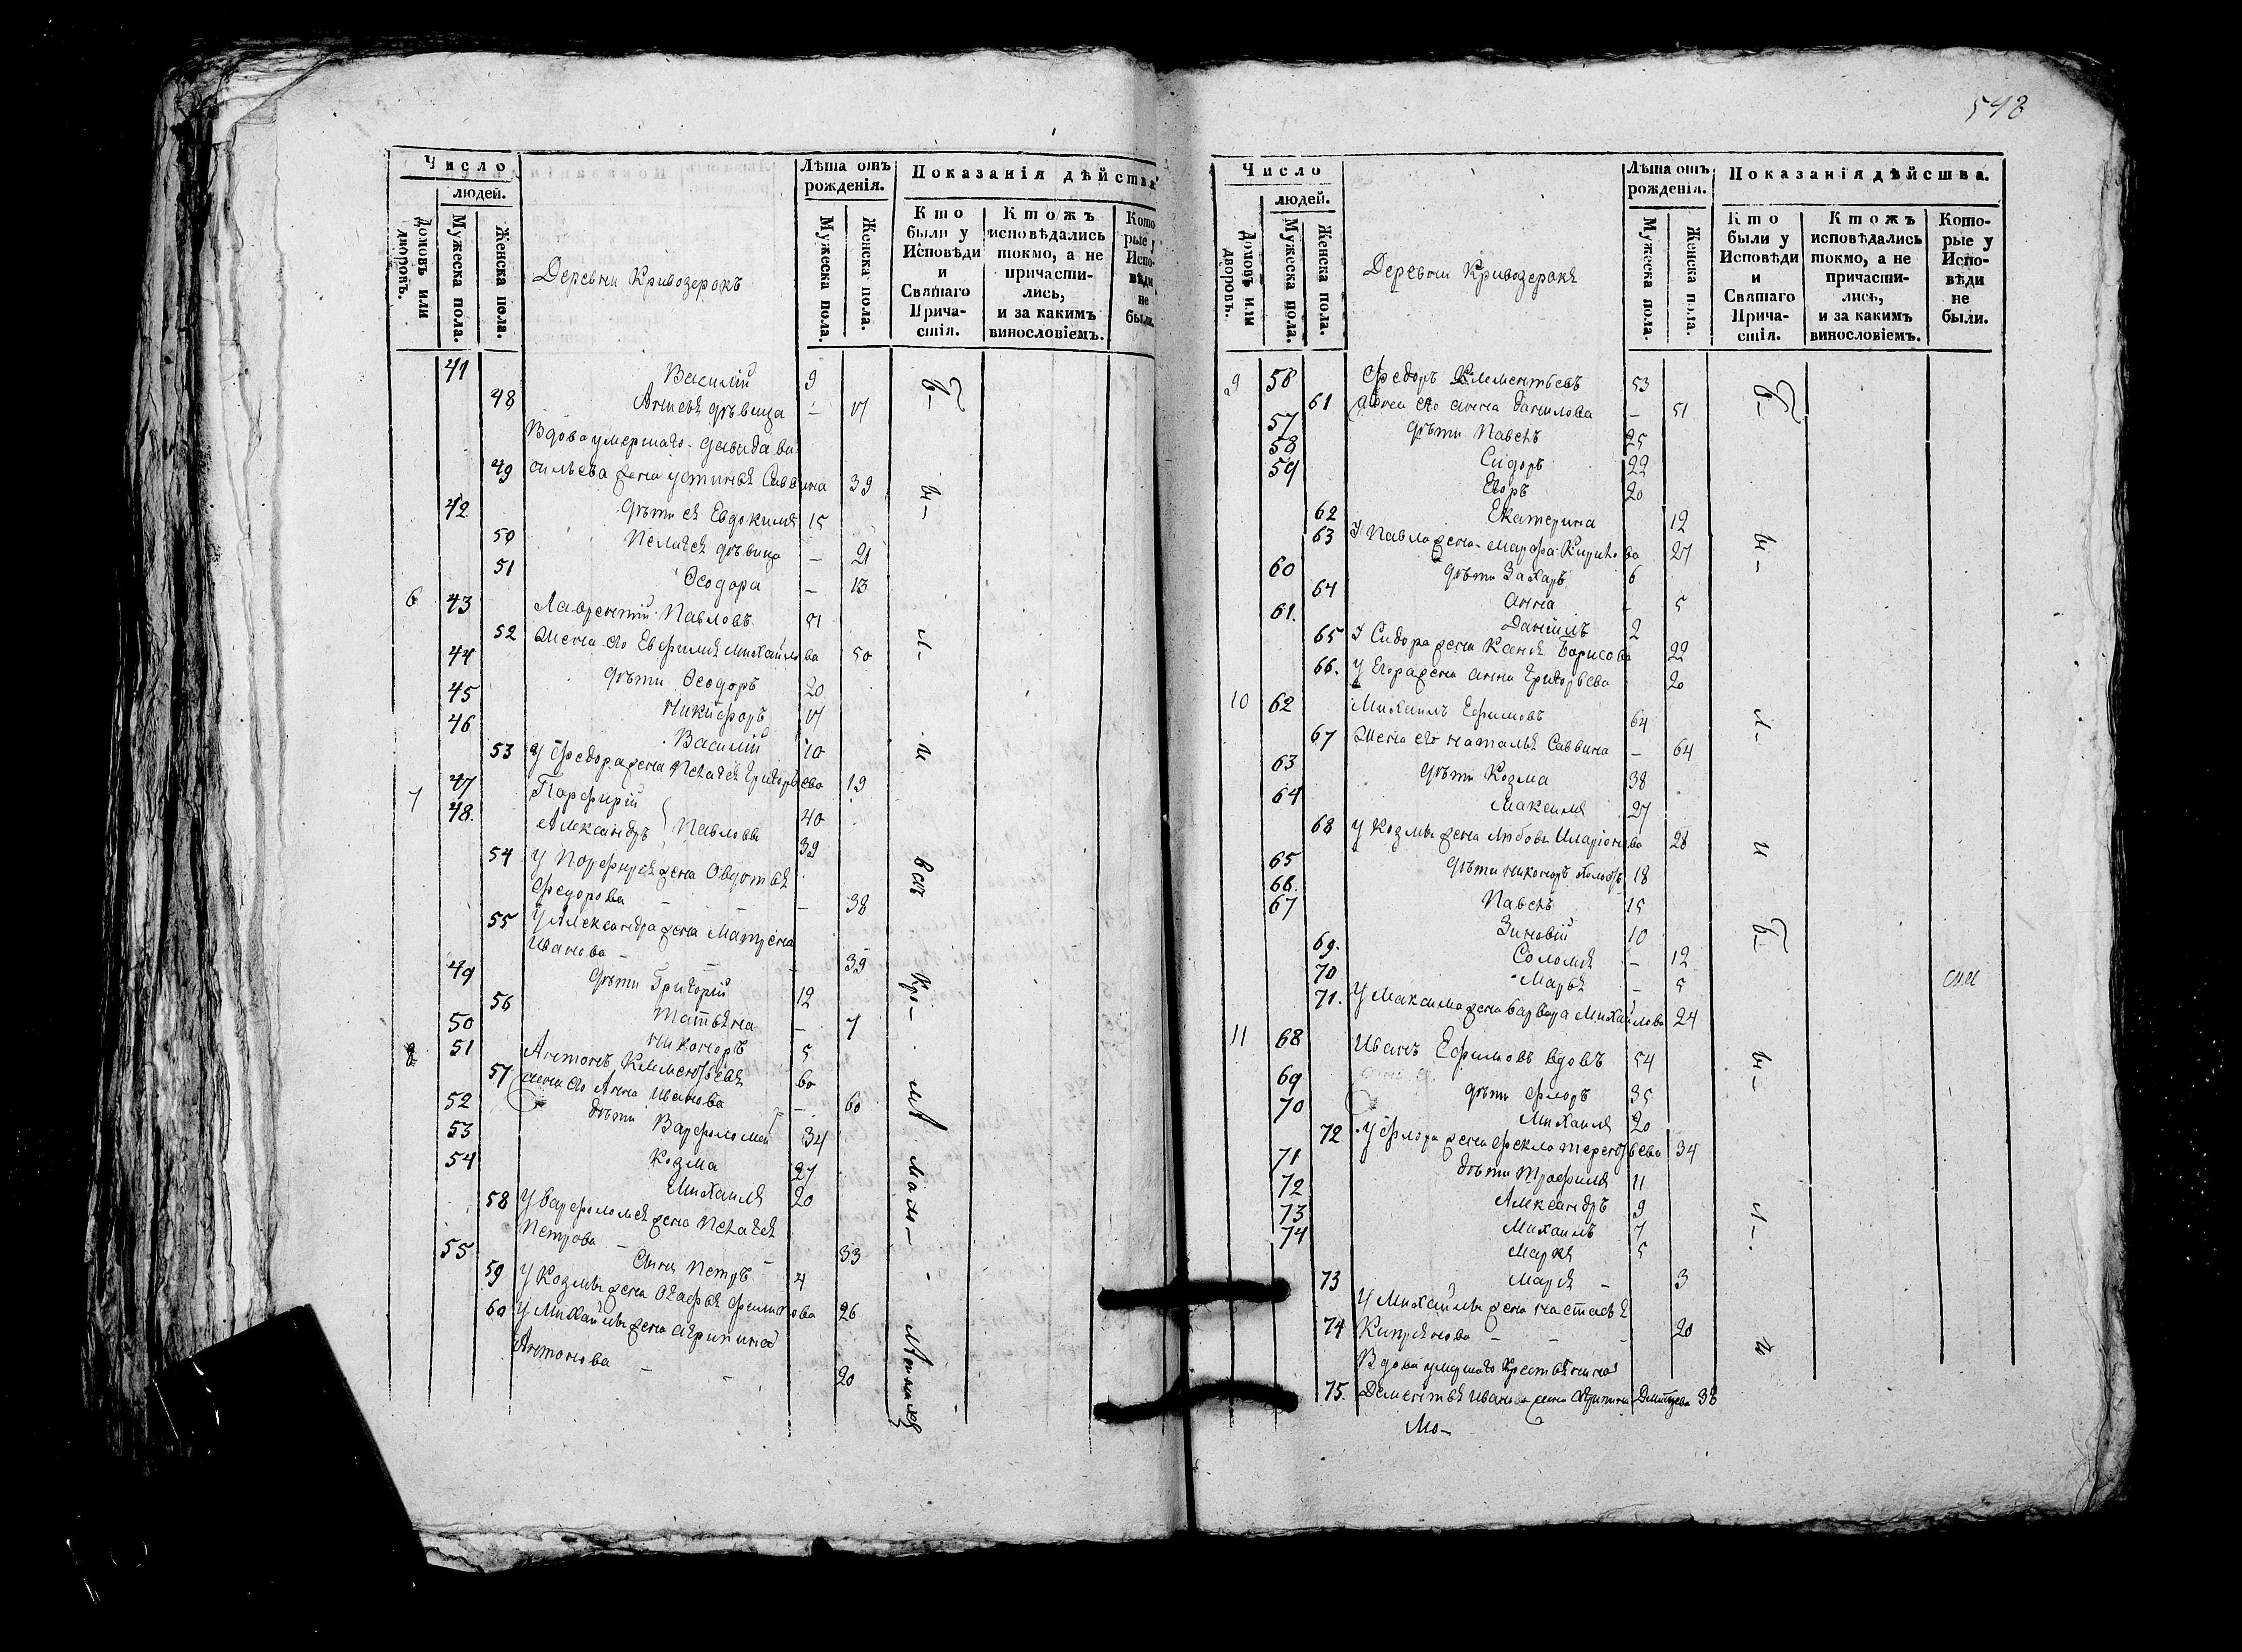 598
Число
людей.
Домовъ или дворовъ.
Мужеска пола.
Женска пола.
Деревни Кривозерокъ
Лѣта отъ рожденія.
Мужеска пола.
Женска пола.
Показанія дѣйства
Кто были у Исповѣди и Святаго Причастія.
Ктожъ исповѣдались токмо, а не причастились, и за какимъ винословіемъ.
Которые у Исповѣди не были.
41 Василій 9
48 дѣвица – 17
Вдова умершаго Давида Ва
49 сильева жена Устинья Саввина 39
42 дѣти ея Евдокимъ 15
50 Пелагея дѣвица – 21
51 Ѳеодора – 13
6 43 Лаврентій Павловъ 51
52 Жена его Евфимія Михайлова 50
44 дѣти Ѳеодоръ 20
45 Никифоръ 17
46 Василій 10
53 У Федора жена Пелагея Григорьева 19
7 47 Порфирій 40
48. Александръ } Павловы 39
54 У Порфирія жена Овдотья
Федорова – – – 38
55 У Александра жена Матрена
Иванова – – – 39
49 дѣти Григорій 12
56 Татьяна – 7
50 Никоноръ 5
8 51 Антонъ Клементьевъ 60
57 жена его Анна Иванова – 60
52 дѣти Варфоломей 34
53 Козма 27
54 Михаилъ 20
58 У Варфоломея жена Пелагея
Петрова – – 33
55 Сынъ Петръ 4
59 У Козмы жена Агафья Филипова 26
60 У Михайлы жена Акрипина
Антонова – – 20
Число
людей.
Домовъ или дворовъ.
Мужеска пола.
Женска пола.
Деревни Кривозерокъ
Лѣта отъ рожденія.
Мужеска пола.
Женска пола.
Показанія дѣйства.
Кто были у Исповѣди и Святаго Причастія.
Ктожъ исповѣдались токмо, а не причастились, и за какимъ винословіемъ.
Которые у Исповѣди не были.
9 56 Федоръ Клементьевъ 53
61 Жена его Анна Данилова – 51
57 дѣти Павелъ 25
58 Сидоръ 22
59 Егоръ 20
62 Екатерина 12
63 У Павла жена Марфа 27
60 дѣти Захаръ 6
64 Анна – 5
61. Даніилъ 2
65 У Сидора жена Борисова 22
66. У Егора жена Анна Григорьева 20
10 62 Михаилъ Ефимовъ 64
67 Жена его Наталья Саввина – 64
63 дѣти Козма 38
64 Максимъ 27
68 У Козмы жена Любовь Иларіонова 28
65 дѣти Никоноръ холостъ 18
66. Павелъ 15
67 Зиновій 10
69. Соломія – 12
70 Марья – 5
71. У Максима жена Варвара Михайлова 24
11 68 Иванъ Ефимовъ вдовъ 54
69 дѣти Флоръ 35
70 Михаилъ 20
72 У Флора жена Фекла Терентьева 34
71 дѣти Трофимъ 11
72 Александръ 9
73 Михаилъ 7
74 Маркъ 5
73 Марья – 3
У Михайлы жена Настасья
74 Кипрянова – – – 20
Вдова умершаго крестьянина
75. Дементья Иванова жена Акрипина Дмитрева 38